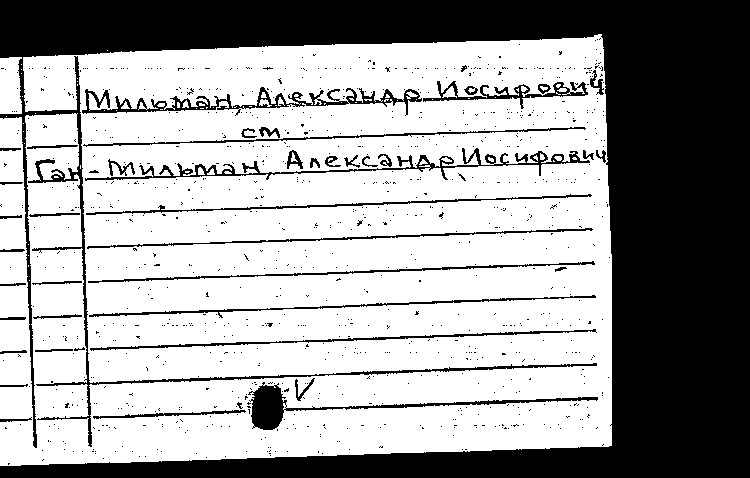 Мильман, Александр Иосифович
см.:
Ган-Мильман, Александр Иосифович
V